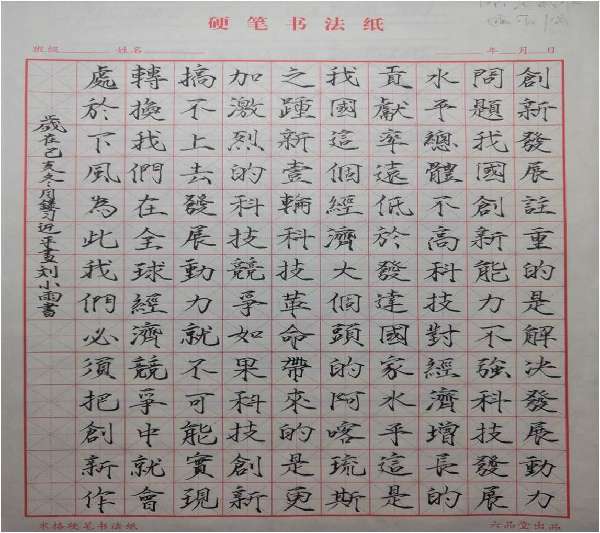 硬笔书法纸
班级 姓名 年 月 日
創新發展註重的是解决發展動力
問題我國創新能力不強科技發展
水平總體不高科技對經濟增長的
貢獻率遠低於發達國家水平這是
我國這個經濟大個頭的阿喀琉斯
之踵新壹輪科技革命帶來的是更
加激烈的科技競爭如果科技創新
搞不上去發展動力就不可能實現
轉換我們在全球經濟競爭中就會
處於下風為此我們必須把創新作
歲在己亥冬月錄习近平畫刘小雨書
米格硬笔书法纸
六品堂出品